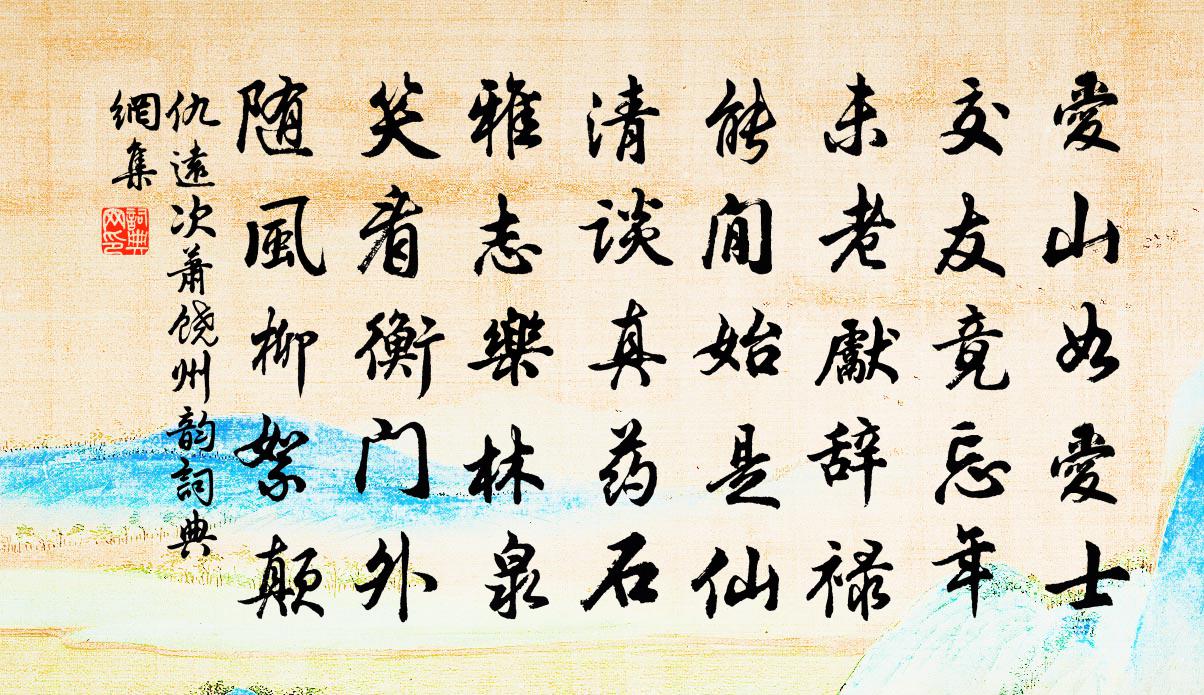 愛山如愛士
交友竟忘年
未老獻辞禄
能闲始是仙
清谈真药石
雅志樂林泉
笑看衡门外
随風柳絮颠
仇遠次萧饶州韵詞典
網集
詞典
网印